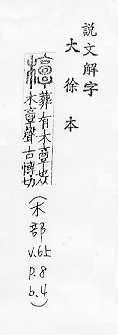 說文解字
大徐本
𣟂
葬有木𩫏也从
木𩫏聲古博切
(木部
v.6上
p.8
b.4)